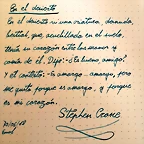 En el desierto
En el desierto vi una criatura, desnuda,
bestial, que, acuclillada en el suelo,
tenía su corazón entre las manos y
comía de él. Dije: ¿Es bueno, amigo?
Y él contestó: Es amargo, amargo, pero
me gusta porque es amargo, y porque
es mi corazón.
Stephen Crane